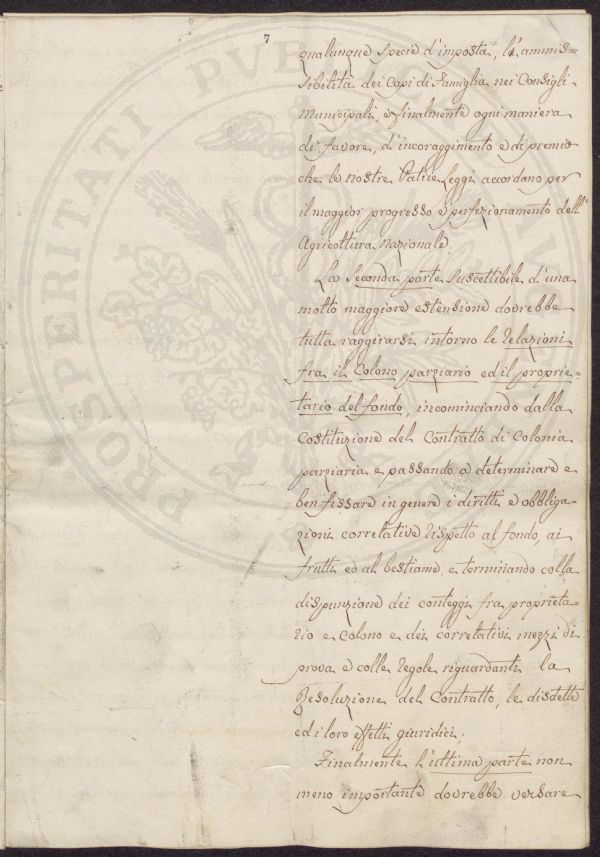 7
qualunque specie d'imposta, l'ammis=
sibilità dei Capi di Famiglia nei Consigli
Municipali, e finalmente ogni maniera
di favore, d'incoraggimento e di premio
che le nostre Patrie Leggi accordano per
il maggior progresso e perfezionamento dell'
Agricoltura nazionale.
La Seconda parte suscettibile d'una
molto maggiore estensione dovrebbe
tutta raggirarsi intorno le relazioni
fra il Colono parziario ed il proprie=
tario del fondo, incominciando dalla
Costituzione del Contratto di Colonia
parziaria e passando a determinare e
ben fissare in genere i diritti e obbliga=
zioni correlative rispetto al fondo, ai
frutti ed al bestiame, e terminando colla
dispunzione dei conteggi fra proprieta=
rio e Colono e dei correlativi mezzi di
prova e colle regole riguardanti la
Resoluzione del Contratto, le disdette
ed i loro effetti giuridici.
Finalmente l'ultima parte non
meno importante dovrebbe versare
PROSPERITATI PUBLICAE AUG